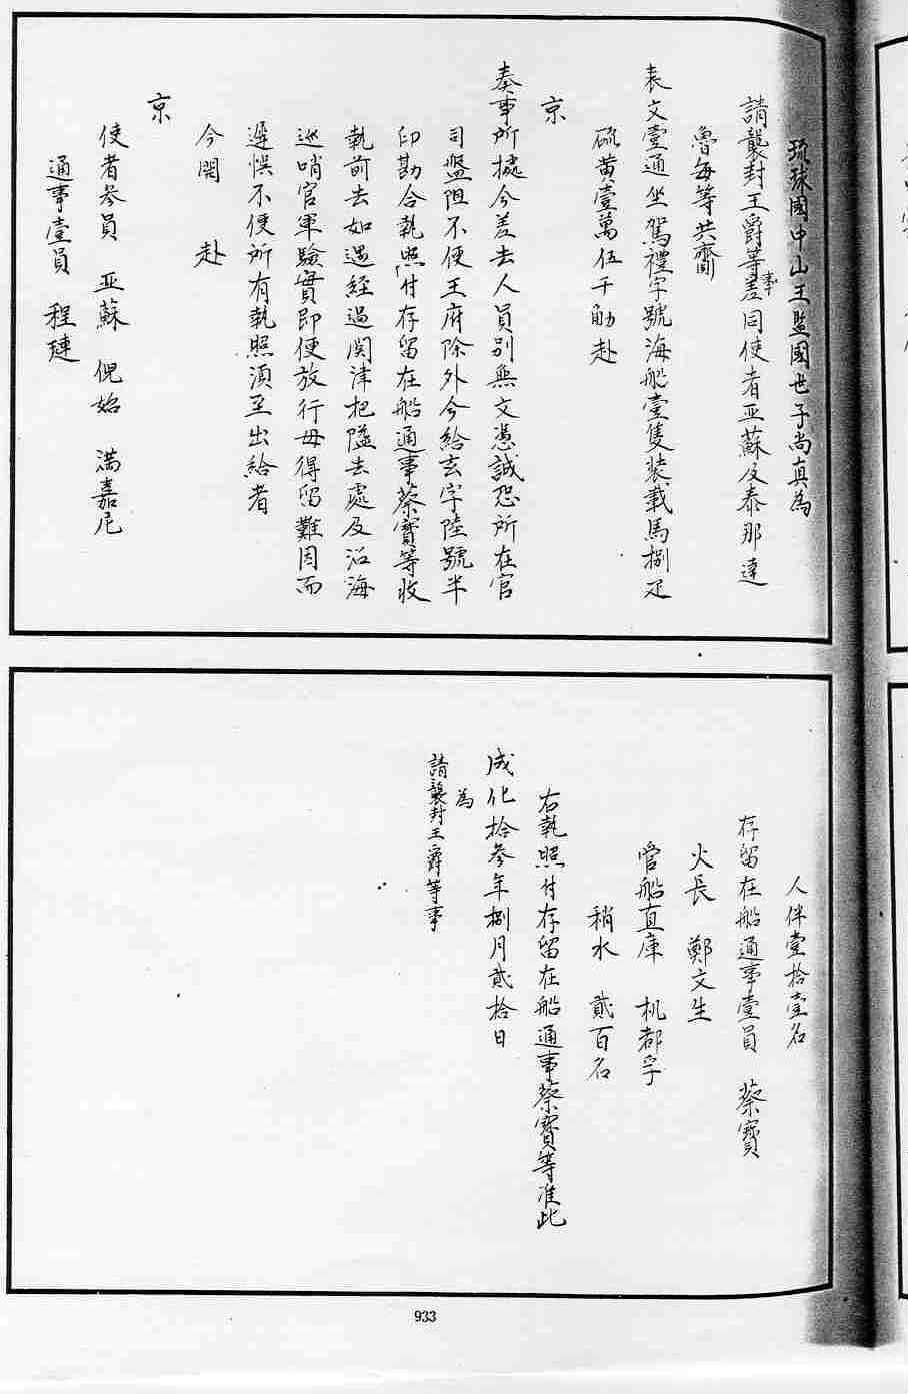 琉球國中山王監國世子尚真為
請襲封王爵等事差同使者亚蘇及泰那達
魯每等共齎
表文壹通坐駕禮字號海船壹隻装載馬捌疋
硫黄壹萬伍千觔赴
京
奏事所據今差去人員别無文憑誠恐所在官
司盤阻不便王府除外今給玄字陸號半
印勘合執照付存留在船通事蔡寶等收
執前去如遇經過関津把隘去處及沿海
巡哨官軍驗實即便放行毋得留難因而
遲悞不便所有執照須至出給者
今開　赴
京
使者叁員　亚蘇　倪始　满嘉尼
通事壹員　程璉
人伴壹拾壹名
存留在船通事壹員　蔡寶
火長　鄭文生
管船直庫　机都孚
稍水　貳百名
右執照付存留在船通事蔡寶等准此
成化拾叁年捌月貳拾日
為
請襲封王爵等事
933